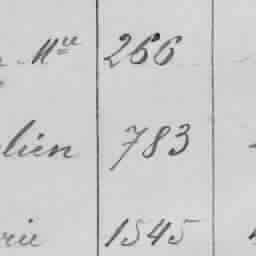 Mlle 266
lien 783
rie 1545